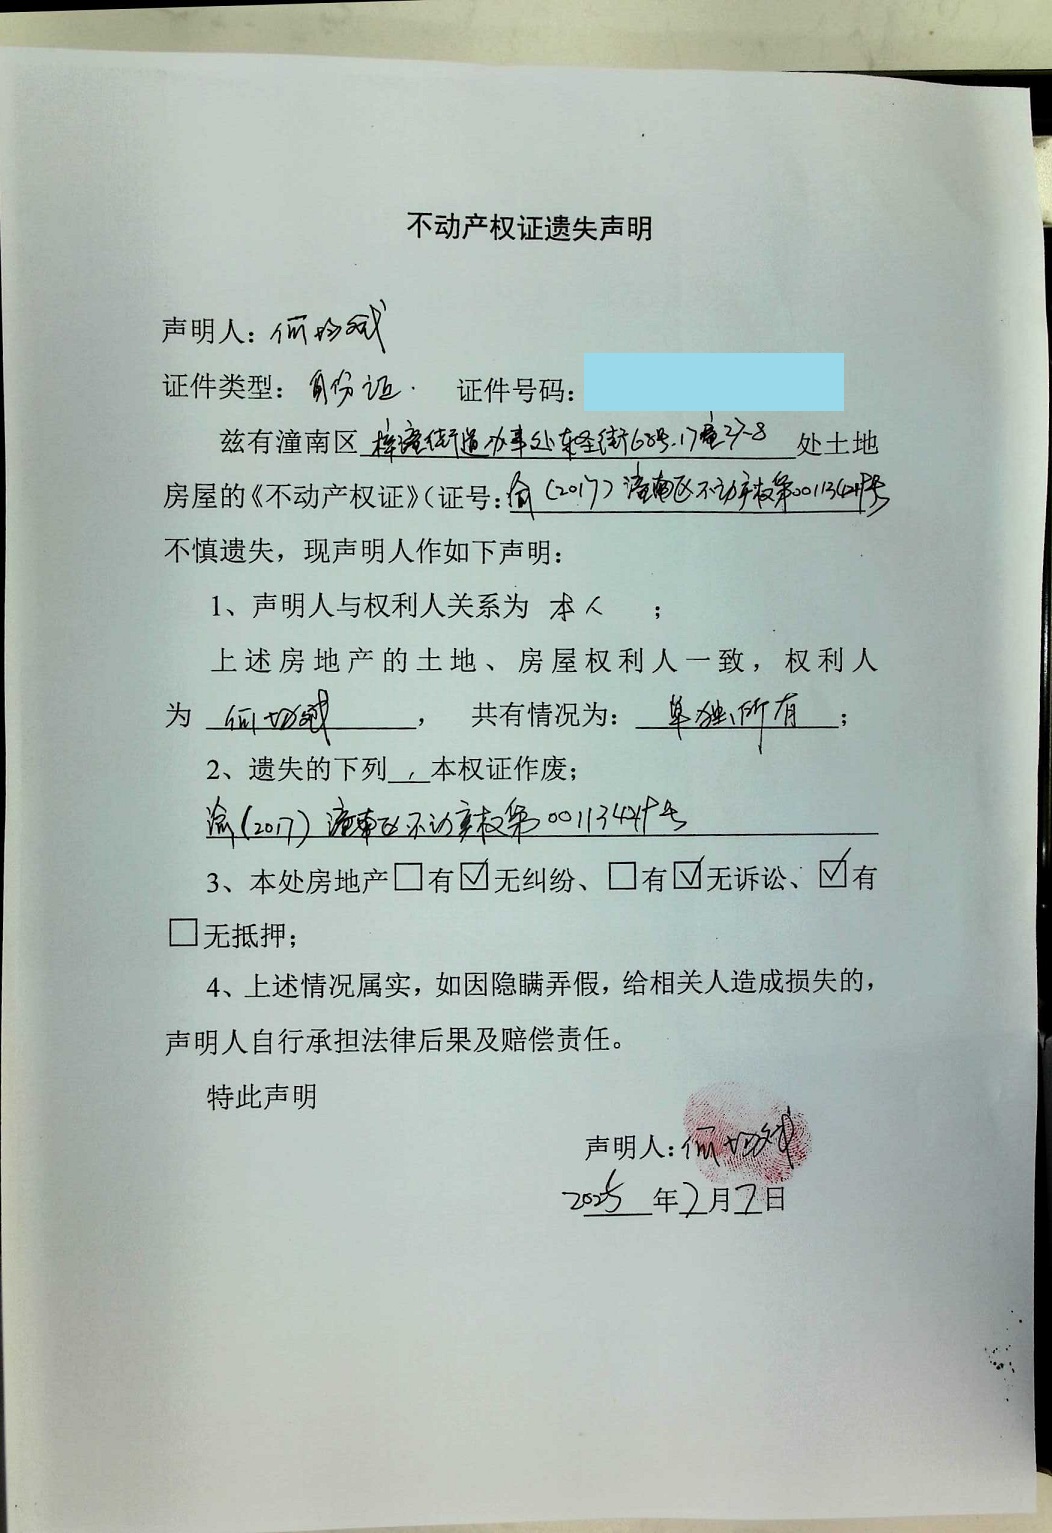 不动产权证遗失声明
声明人：何
证件类型：身份证. 证件号码：
兹有潼南区梓潼街道办事处 街68号.17幢27-8处土地
房屋的《不动产权证》（证号：渝(2017)潼南区不动产权第 号
不慎遗失，现声明人作如下声明：
1、声明人与权利人关系为 本人 ；
上述房地产的土地、房屋权利人一致，权利人
为 何 ， 共有情况为： 单独所有 ；
2、遗失的下列 本权证作废；
渝(2017)潼南区不动产权第 号
3、本处房地产□有☑无纠纷、□有☑无诉讼、☑有
□无抵押；
4、上述情况属实，如因隐瞒弄假，给相关人造成损失的，
声明人自行承担法律后果及赔偿责任。
特此声明
声明人：何
2025 年7月7日